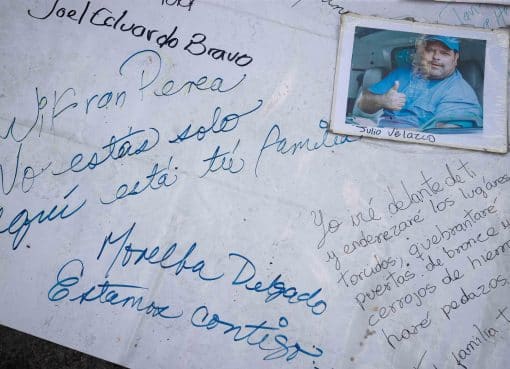 Joel Eduardo Bravo
Fran Perea
No estás solo
aquí está tú familia
Morelba Delgado
Estamos contigo.
Julio Velazco
Yo iré delante de ti
y enderezaré los lugares
torcidos, quebrantaré
puertas de bronce y
cerrojos de hierro
haré pedazos.
familia